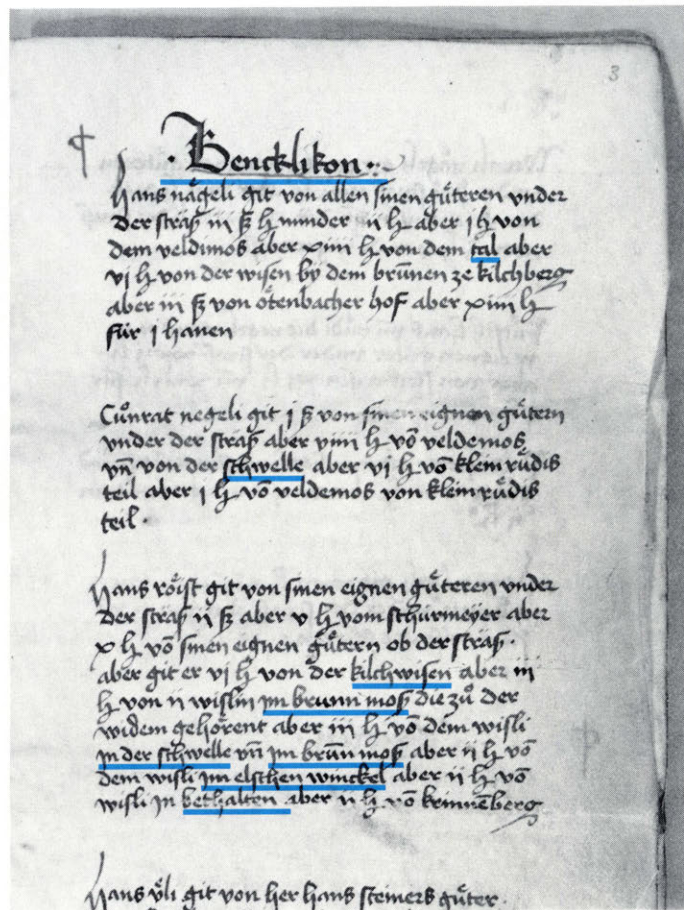 3
· Bencklikon ·
Hans nägeli git von allen sinen gůteren vnder
der straß iii ß h minder ii h aber i h von
dem veldimos aber xiiii h von dem tal aber
vj h von der wisen by dem brunnen ze kilchberg
aber iii ß von ötenbacher hof aber xiiii h
für j hanen
Cůnrat negeli git j ß von sinen eignen gůtern
vnder der straß aber viiii h võ veldemos
vñ von der schwelle aber vj h võ klein růdis
teil aber j h võ veldemos von klein růdis
teil ·
Hans röist git von sinen eignen gůteren vnder
der straß ii ß aber v h vom schürmeyer aber
x h võ sinen eignen gůtern ob der straß ·
aber git er vj h von der kilchwisen aber iii
h von ii wislin jm brunn moß die zů der
widem gehörent aber iii h võ dem wisli
jn der schwelle vñ jm brůn moß aber ii h võ
dem wisli jm elschen winckel aber ii h võ
wisli jn bethalten aber ii h võ krinnẽberg
Hans ůli git von her hans steiners gůter ·